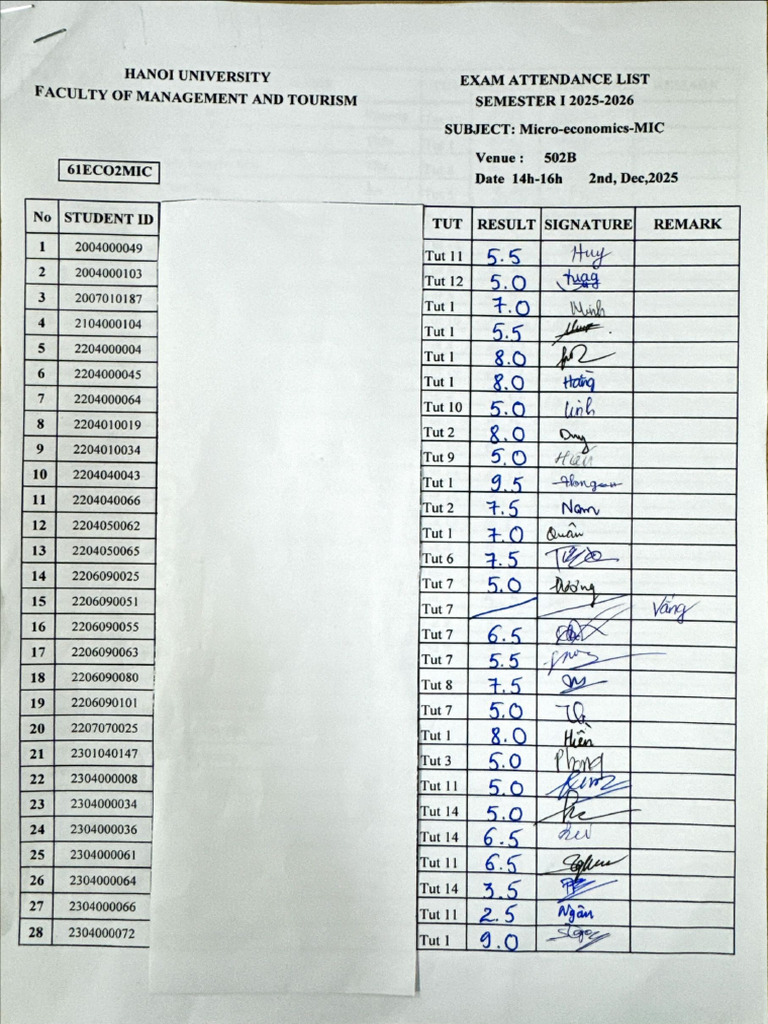 HANOI UNIVERSITY
FACULTY OF MANAGEMENT AND TOURISM
EXAM ATTENDANCE LIST
SEMESTER I 2025-2026
SUBJECT: Micro-economics-MIC
Venue : 502B
Date 14h-16h 2nd, Dec,2025
61ECO2MIC
No STUDENT ID TUT RESULT SIGNATURE REMARK
1 2004000049 Tut 11 5.5 Huy
2 2004000103 Tut 12 5.0
3 2007010187 Tut 1 7.0 Minh
4 2104000104 Tut 1 5.5
5 2204000004 Tut 1 8.0
6 2204000045 Tut 1 8.0 Hoàng
7 2204000064 Tut 10 5.0 Linh
8 2204010019 Tut 2 8.0 Duy
9 2204010034 Tut 9 5.0 Hiếu
10 2204040043 Tut 1 9.5
11 2204040066 Tut 2 7.5 Nam
12 2204050062 Tut 1 7.0 Quân
13 2204050065 Tut 6 7.5
14 2206090025 Tut 7 5.0 Dương
15 2206090051 Tut 7 Vắng
16 2206090055 Tut 7 6.5
17 2206090063 Tut 7 5.5
18 2206090080 Tut 8 7.5
19 2206090101 Tut 7 5.0
20 2207070025 Tut 1 8.0 Hiền
21 2301040147 Tut 3 5.0 Phong
22 2304000008 Tut 11 5.0
23 2304000034 Tut 14 5.0
24 2304000036 Tut 14 6.5
25 2304000061 Tut 11 6.5
26 2304000064 Tut 14 3.5
27 2304000066 Tut 11 2.5 Ngân
28 2304000072 Tut 1 9.0